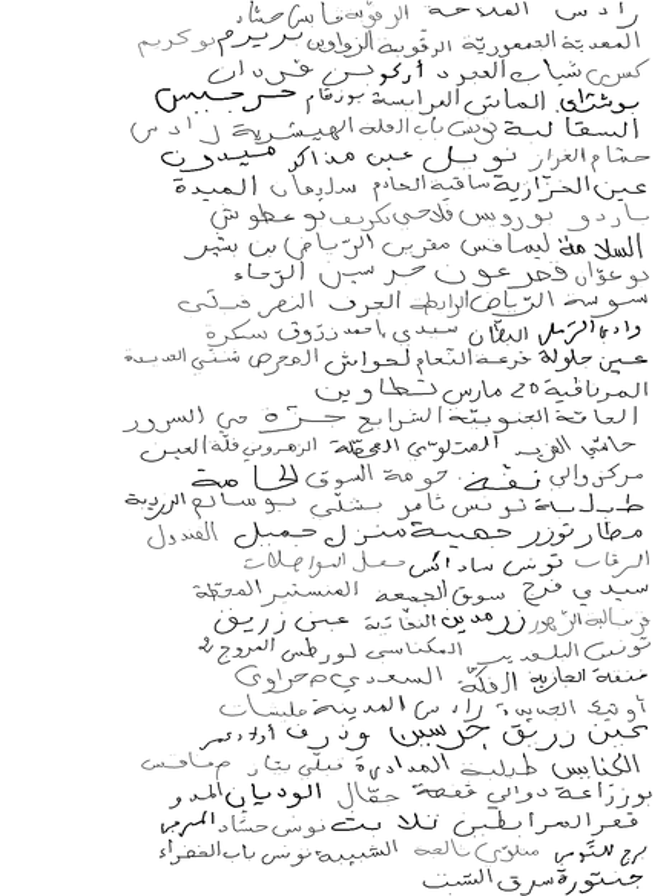 رادس الملاحة الرقوبة قابس حشاد
المعدية الجمهورية الرقوبة الزواوين بوكريم
كسرى شباب أركو بن قردان
بوشراي الماتلين العرابسة بوزقام جرجيس
السقالبة تونس باب القلة الهيشرية رادس
حشام القزاز نوبل عين مذاكر ميدون
عين الخزازية ساقية الخادم سليمان الميدة
باردو بوروبس فلاحي تكريف بوعطوش
السلامة ليمافس مقرين الرياض بن بشير
بوعوان قمرعون جرسين الرخاء
سوسة الرياض الرابطة الجرف النصر
وادي الرمل البطان سيدي احمد زروق سكرة
عين جلولة فرعة النعام لحواش المحرص شنني الجديدة
المرناقية 20 مارس تطاوين
الحامة الجنوبية الشرايع حزة حي السرور
حامتي الفريد المتلوي المحطة الزهروني قلة العين
مركز والي نفة حومة السوق الحامة
طبلبة تونس ثامر بشلي بوسالم الزريبة
مطار توزر جهينة منزل جميل
الرقاب تونس ساداكس المواصلات
سيدي فرج سوق الجمعة المنستير المحطة
قرسالية الزهور زرمدين النفاتية عين زريق
تونس البلفدير المكناسي لورطس المروج 2
منفة الجازية الفكة السعدي صحراوي
أوتيك الجديدة رادس المدينة مليشات
عين زريق جرسين وذرف أولاد عمر
الكنايس طبلبة قبلي بنار صفاقس
بوزراعة دوالي قفصة حقال الوديان
قصر المرابطين تلابت تونس حشاد
برج التومي متلوي تالمة الشبيبة تونس باب الخضراء
جنتورة سوق السبت